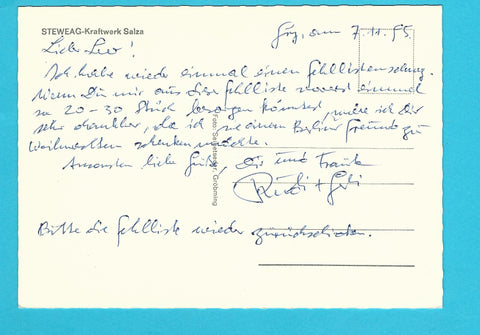 STEWEAG-Kraftwerk Salza
7.11.95
Lieber Leo!
Ich habe wieder einmal einen Fehllistenwunsch.
Wenn Du mir aus der Fehlliste vorerst einmal
ca 20-30 Stück besorgen könntest, wäre ich Dir
sehr dankbar, da ich sie einem Berliner Freund zu
Weihnachten schenken möchte.
Ansonsten liebe Grüße, Dir und Traute
Rudi + Gerti
Bitte die Fehlliste wieder zurückschicken.
Gröbming